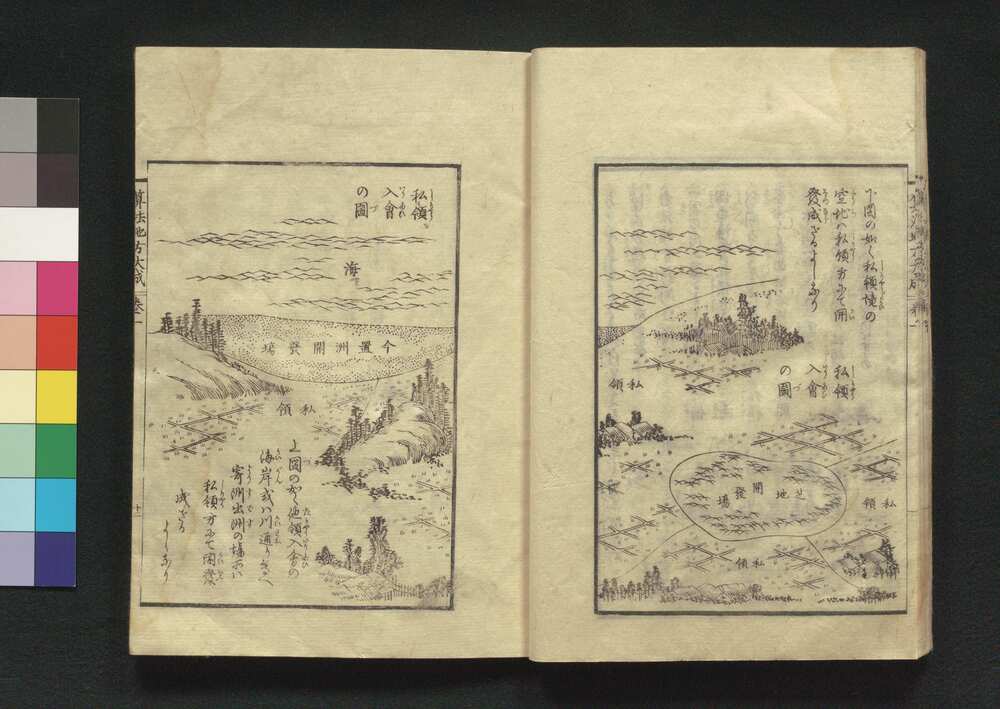 下図の如く私領境の
空地ハ私領方にて開
發成ざるよしなり
私領
入會
の圖
私領
開發場
芝地
私領
私領
私領
入會
の圖
海
今置洲開發場
私領
上図の如く他領入會の
海岸或ハ川通りさへ
寄洲出洲の場所ハ
私領方にて開發
成ざる
よしなり
算法地方大成
卷一
十一